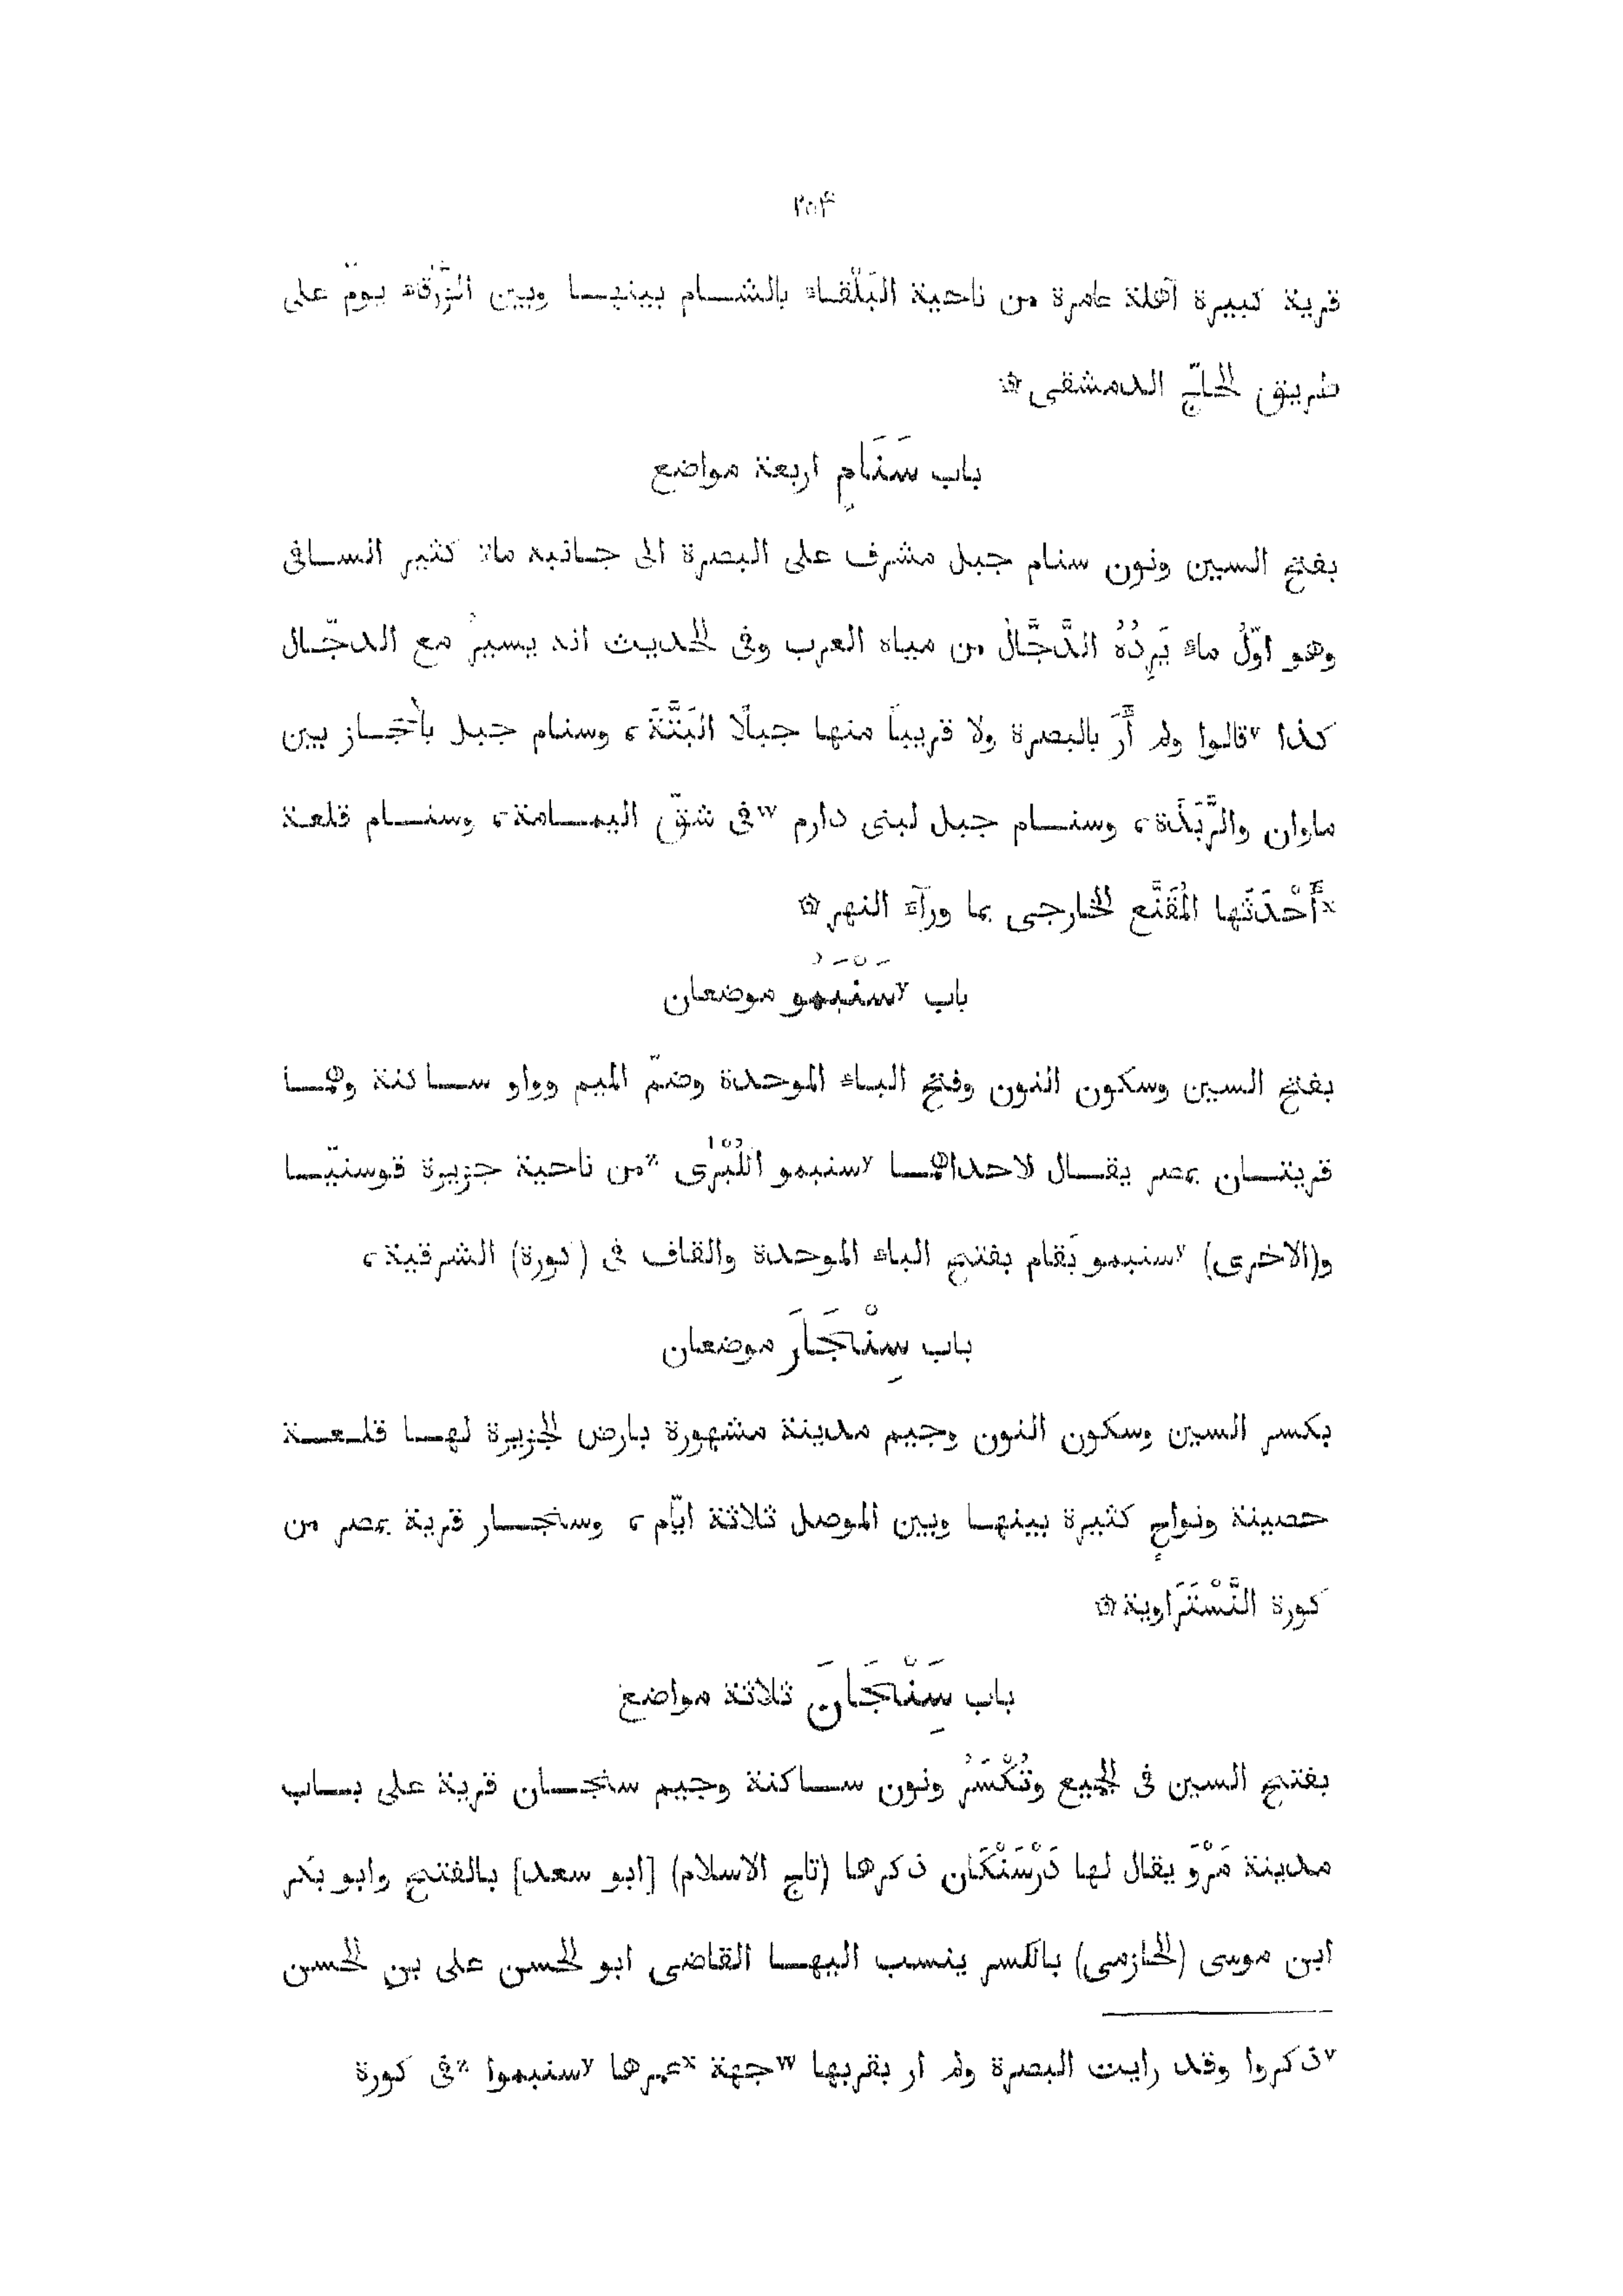 ٢٥۴
قرية كبيرة آهلة عامرة من ناحية البَلْقاء بالشام بينها وبين الزَّرْقاء يومٌ على
طريق الحاجّ الدمشقى ۞
باب سَنَامٍ اربعة مواضع
بفتح السين ونون سنام جبل مشرف على البصرة الى جانبه ماء كثير السافى
وهو اوّلُ ماء يَرِدُهُ الدَّجَّالُ من مياه العرب وفى الحديث انه يسيرُ مع الدجّال
كذا ᵛقالوا ولم أَرَ بالبصرة ولا قريباً منها جبلًا البَتَّةَ، وسنام جبل بالحجاز بين
ماوان والرَّبَذَة، وسنام جبل لبنى دارم ʷفى شقّ اليمامة، وسنام قلعة
ˣأَحْدَثَها المُقَنَّع الخارجى بما ورآء النهر ۞
باب ʸسَنْبَمُو موضعان
بفتح السين وسكون النون وفتح الباء الموحدة وضمّ الميم وواو ساكنة وهما
قريتان بمصر يقال لاحداهما ʸسنبمو الكُبْرَى ᶻمن ناحية جزيرة قوسنيّا
و(الاخرى) ʸسنبمو بَقام بفتح الباء الموحدة والقاف فى (كورة) الشرقية،
باب سِنْجَارَ موضعان
بكسر السين وسكون النون وجيم مدينة مشهورة بارض الجزيرة لها قلعة
حصينة ونواحٍ كثيرة بينها وبين الموصل ثلاثة ايّام، وسنجار قرية بمصر من
كورة النَّسْتَرَاوية ۞
باب سَِنْجَانَ ثلاثة مواضع
بفتح السين فى الجميع وتُكْسَرُ ونون ساكنة وجيم سنجان قرية على باب
مدينة مَرْوَ يقال لها دَرْسَنْكَان ذكرها (تاج الاسلام) [ابو سعد] بالفتح وابو بكر
ابن موسى (الحازمى) بالكسر ينسب اليها القاضى ابو الحسن على بن الحسن
ᵛذكروا وقد رايت البصرة ولم ار بقربها ʷجهة ˣعمرها ʸسنبموا ᶻفى كورة